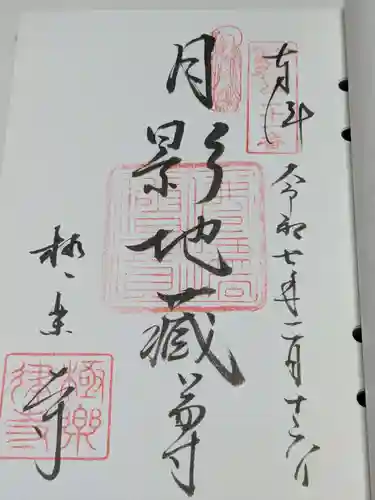 奉拝
令和七年二月十六日
月影地蔵尊
極楽寺
極樂律寺